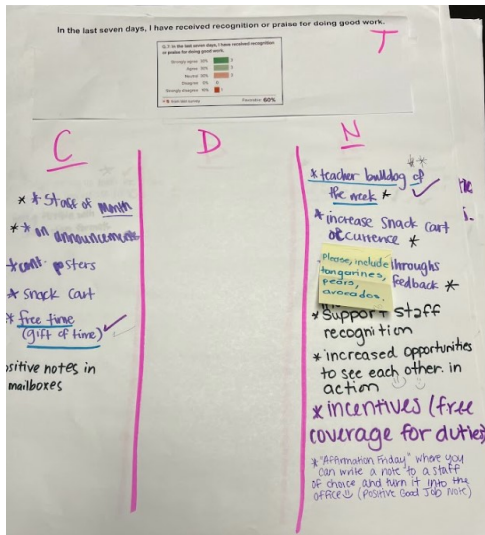 In the last seven days, I have received recognition or praise for doing good work.
Q.7. In the last seven days, I have received recognition
or praise for doing good work.
Strongly agree 30% 3
Agree 30% 3
Neutral 30% 3
Disagree 0% 0
Strongly disagree 10% 1
from last survey
Favorable: 60%
T
C
* * Staff of month
* * on announcements
* cont. posters
* snack cart
* free time
(gift of time)
ositive notes in
mailboxes
D
N
* teacher bulldog of
the week *
* increase snack cart
occurrence *
Please, include
tangarines,
pears,
avocados.
throughs
feedback *
* support staff
recognition
* increased opportunities
to see each other in
action
* incentives (free
coverage for duties)
* "Affirmation Friday" where you
can write a note to a staff
of choice and turn it into the
office (Positive Good Job Note)